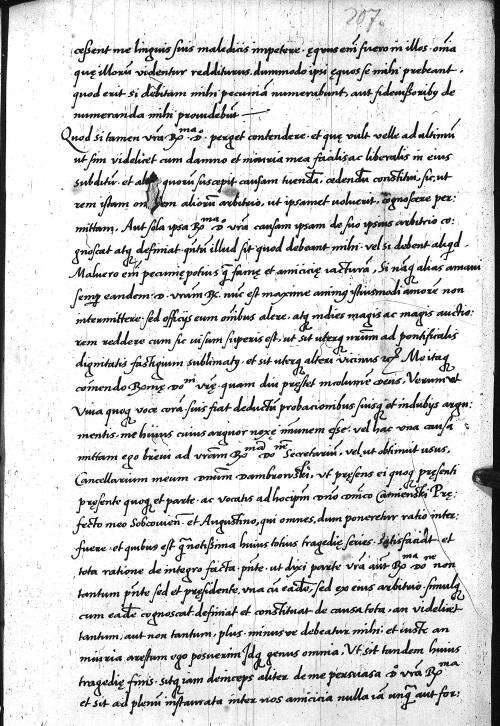 207.
cessent me linguis suis maledicis impetere. ęquus em̄ fuero in illos. om̄ia
quę illorū videntur redditurus. dummodo ipsi ęquos se mihi prebeant.
quod erit si debitam mihi pecuniā numerabunt, aut fideiussoribꝫ de
numeranda mihi providebūt
Quod si tamen vr̄a Rma D. perget contendere. et quę vult velle ad altimū
ut sim videlicet cum damno et iniuria mea facilis ac liberalis in eius
subditū. et quorū suscepit causam tuendā. cedendū constitui. sic, ut
rem istam alionū arbitrio, ut ipsamet voluerit, cognoscere per:
mittam. Aut sola ipsa Rma D vr̄a causam ipsam de suo ipsius arbitrio co:
gnoscat atqꝫ definiat. quātū illud sit quod debeant mihi. vel si debent aliqd.
Maluero em̄ pecunię potius q̄ famę et amicicię iacturā. Si náqꝫ alias amavi
semp eandem. D. vram R. nūc est maxime animꝰ istiusmodi amorē non
intermittere. sed officijs eum om̄ibus alere. atqꝫ indies magis ac magis auctio:
rem reddere cum sic visum superis est, ut sit uterqꝫ nr̄um ad pontificalis
dignitatis fastigium sublimatꝰ. et sit uterqꝫ alteri vicinus Me itaqꝫ
cōmendo Bonę Dni vrę. quam diu pręstet incolumē Deus. Verum ut
Vivia quoqꝫ voce corā suis fiat deductū probacionibus suisqꝫ et indubijs argu:
mentis. me huius cuius arguor noxę īmunem esse. vel hac una causa
mittam ego brevi ad vr̄am Rmā Dnē Secretariū, vel, ut obtinuit usus,
Cancellarium meum. dnum Dambrowski. ut pręsens ei quoqꝫ pręsenti
pręsente quoqꝫ et parte. ac vocatis ad hoc ipm dn̄o dn̄ico Camienski Pre:
fecto meo Sobcovien. et Augustino, qui omnes, dum poneretur ratio inter:
fuere. et quibus est q̄ notissima huius totius tragedię series. Satisfaciat et
tota ratione de integro facta. pn̄te. ut dixi parte vr̄a aut Rma Dne non
tantum pn̄te sed et pręsidente. una cū eadē, sed ex eius arbitrio. simulqꝫ
cum eadē cognoscat definiat et constituat de causa tota. an videlicet
tantum, aut non tantum, plus. minusve debeatur mihi. et iuste an
iniuria arestum ego posuerim Idqꝫ genus omnia. Ut sit tandem huius
tragedię finis. sitqꝫ iam deinceps aliter de me persuasa D vr̄a Rma
et sit ad plenū instaurata inter nos amicicia nulla iā unq̄ aut for: